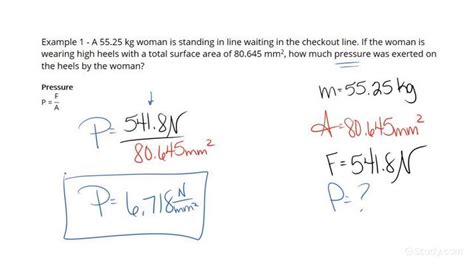 Example 1 - A 55.25 kg woman is standing in line waiting in the checkout line. If the woman is
wearing high heels with a total surface area of 80.645 mm², how much pressure was exerted on
the heels by the woman?
Pressure
P = F/A
P = 541.8N / 80.645mm²
P = 6.718 N/mm²
m = 55.25 kg
A = 80.645mm²
F = 541.8N
P = ?
Study.com